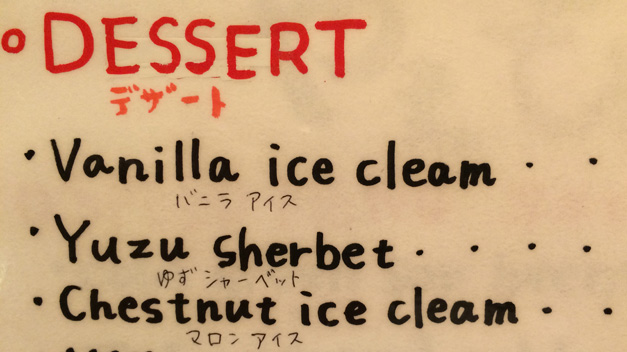 ○ DESSERT
デザート
・Vanilla ice cleam ・ ・
バニラ アイス
・Yuzu sherbet ・ ・ ・ ・
ゆず シャーベット
・Chestnut ice cleam ・ ・
マロン アイス